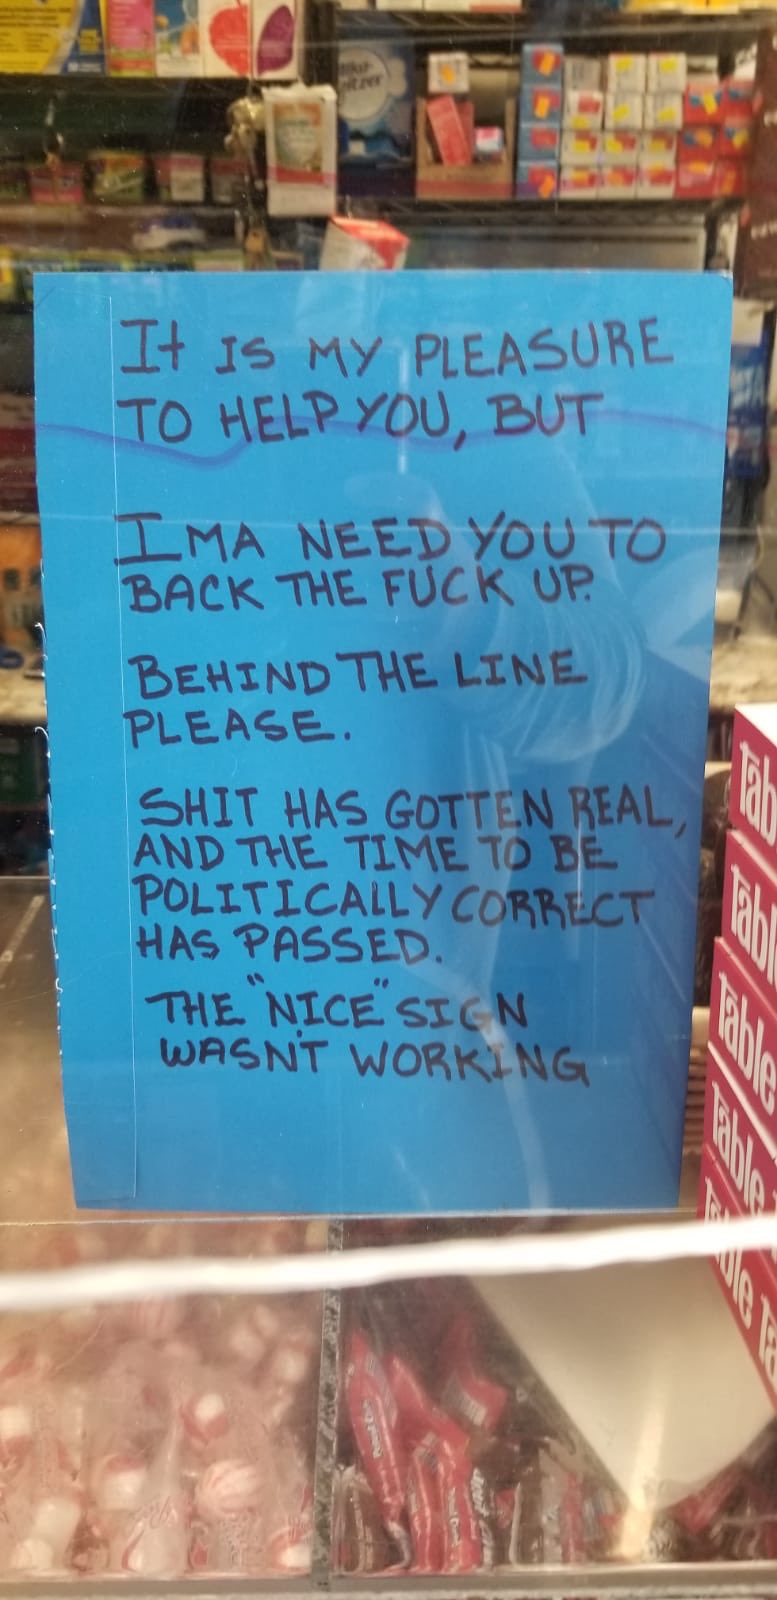 It IS MY PLEASURE
TO HELP YOU, BUT
IMA NEED YOU TO
BACK THE FUCK UP.
BEHIND THE LINE
PLEASE.
SHIT HAS GOTTEN REAL,
AND THE TIME TO BE
POLITICALLY CORRECT
HAS PASSED.
THE "NICE" SIGN
WASN'T WORKING
Tab
Tabl
Table
Table
ble Ta